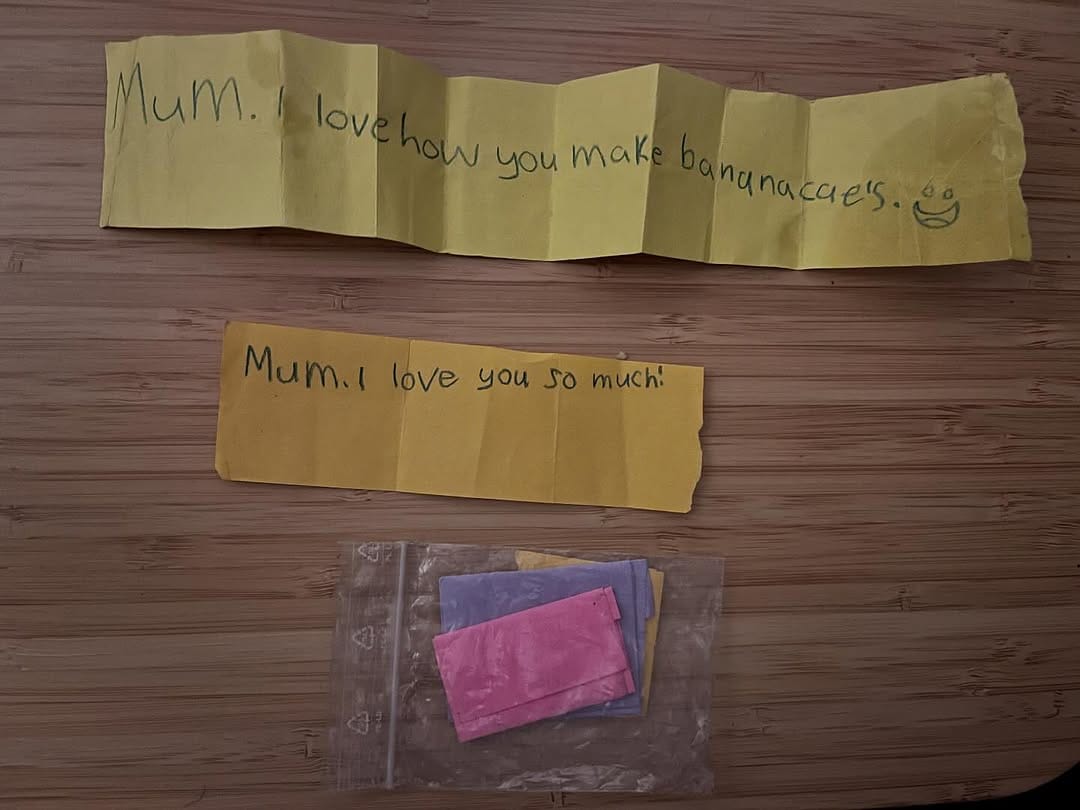 Mum. I love how you make bananacae's.
Mum. I love you so much!